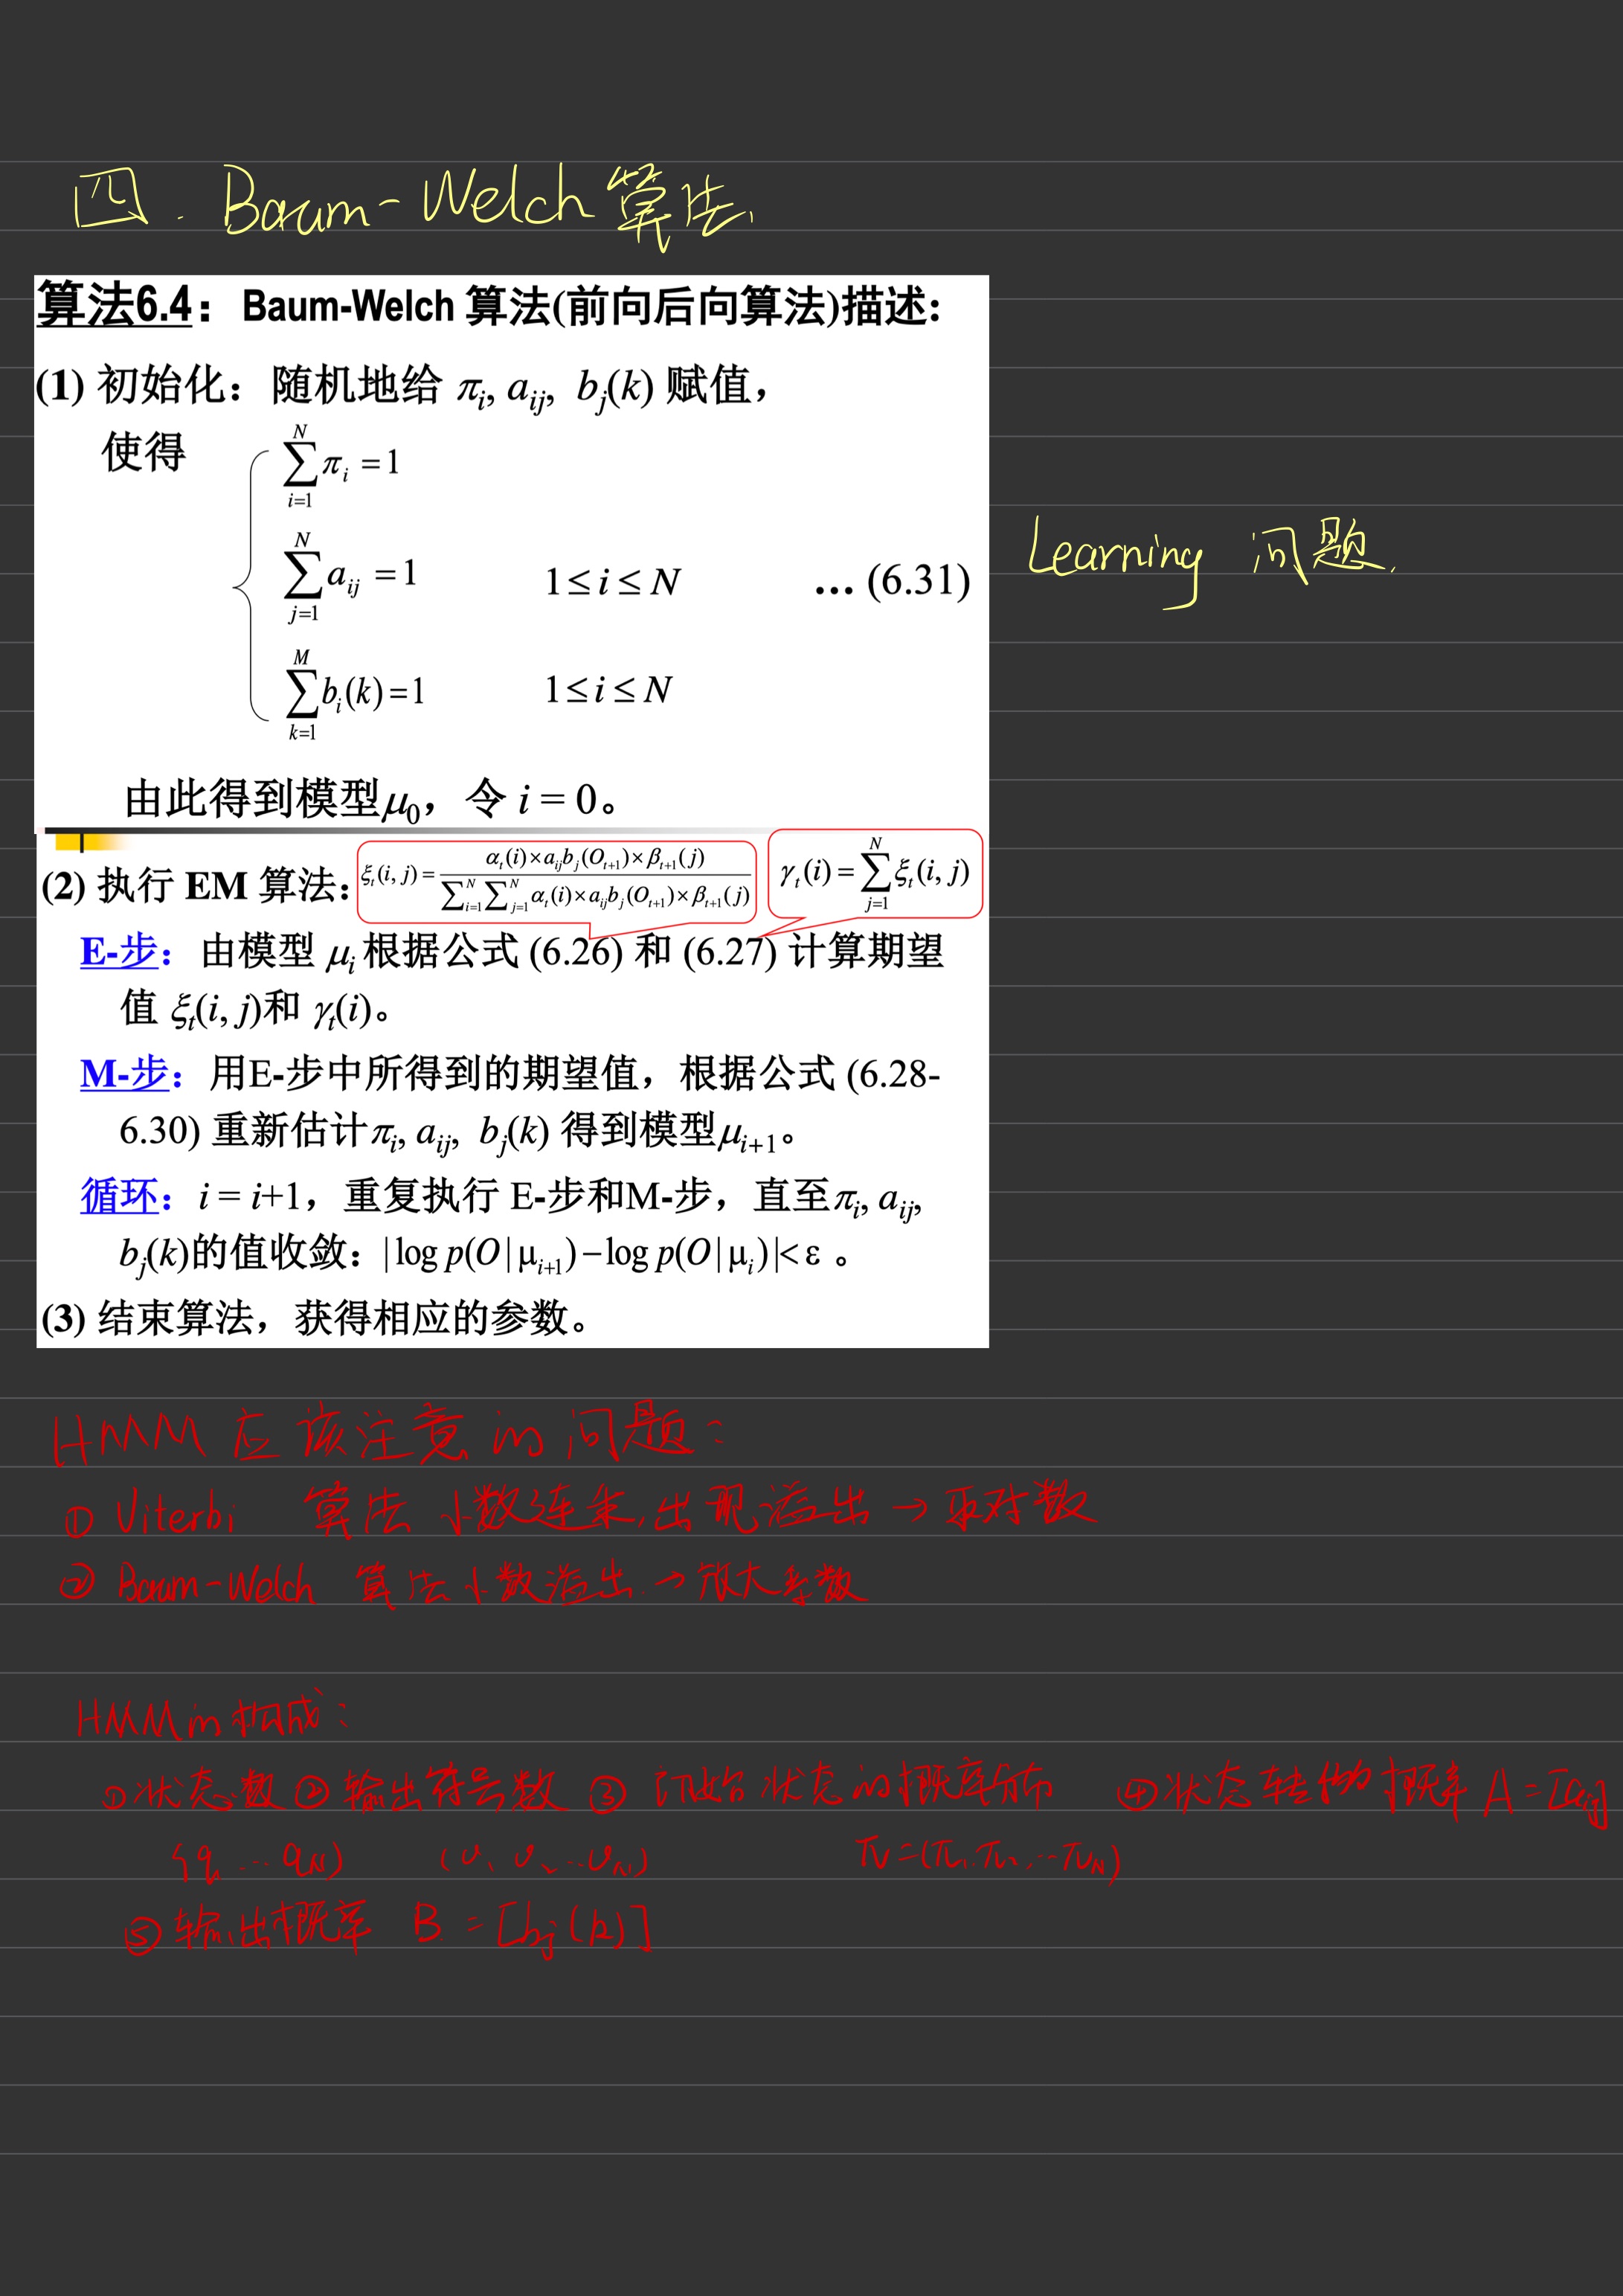 四. Baum-Welch算法.
算法6.4： Baum-Welch 算法(前向后向算法)描述：
(1) 初始化： 随机地给 πᵢ, aᵢⱼ, bⱼ(k) 赋值，
使得
∑_{i=1}^{N} πᵢ = 1
∑_{j=1}^{N} aᵢⱼ = 1 1≤i≤N … (6.31)
Learning 问题.
∑_{k=1}^{M} bᵢ(k) = 1 1≤i≤N
由此得到模型μ₀， 令 i = 0。
(2) 执行 EM 算法： ξₜ(i, j) = αₜ(i)×aᵢⱼbⱼ(Oₜ₊₁)×βₜ₊₁(j) / ∑_{i=1}^{N}∑_{j=1}^{N} αₜ(i)×aᵢⱼbⱼ(Oₜ₊₁)×βₜ₊₁(j) γₜ(i) = ∑_{j=1}^{N} ξₜ(i, j)
E-步： 由模型 μᵢ 根据公式 (6.26) 和 (6.27) 计算期望
值 ξₜ(i, j)和 γₜ(i)。
M-步： 用E-步中所得到的期望值，根据公式 (6.28-
6.30) 重新估计πᵢ, aᵢⱼ, bⱼ(k) 得到模型μᵢ₊₁。
循环： i = i+1，重复执行 E-步和M-步，直至πᵢ, aᵢⱼ,
bⱼ(k)的值收敛：|log p(O|μᵢ₊₁)−log p(O|μᵢ)|< ε 。
(3) 结束算法，获得相应的参数。
HMM 应该注意的问题：
① Viterbi 算法 小数连乘,出现溢出 → 取对数
② Baum-Welch 算法小数溢出.→放大系数
HMM的构成：
①状态数 ②输出符号数 ③ 初始状态的概率分布 ④状态转移概率 A=[aᵢⱼ]
π=(π₁.π₂,…π_N)
⑤输出概率 B = [bⱼ(k)]